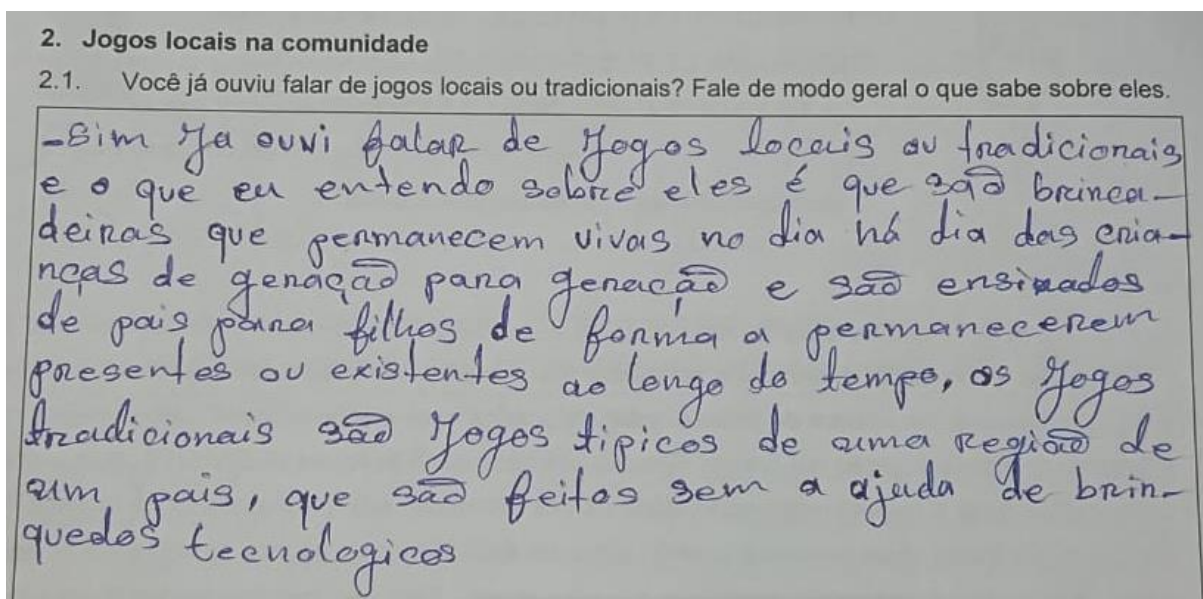 2. Jogos locais na comunidade
2.1. Você já ouviu falar de jogos locais ou tradicionais? Fale de modo geral o que sabe sobre eles.
-Sim Ja ouvi falar de Jogos locais ou tradicionais
e o que eu entendo sobre eles é que são brinca-
deiras que permanecem vivas no dia há dia das cria-
nças de geração para geração e são ensinados
de pais para filhos de forma a permanecerem
presentes ou existentes ao longo do tempo, os Jogos
tradicionais são Jogos tipicos de uma Região de
um pais, que são feitos sem a ajuda de brin-
quedos tecnologicos